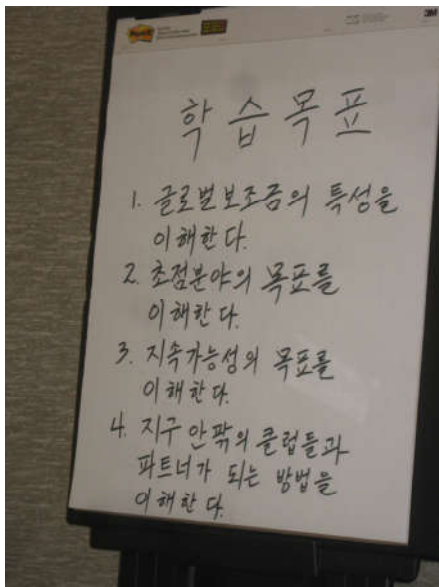 Post-it
3M
학습목표
1. 글로벌보조금의 특성을
이해한다.
2. 초점분야의 목표를
이해한다.
3. 지속가능성의 목표를
이해한다.
4. 지구 안팎의 클럽들과
파트너가 되는 방법을
이해한다.